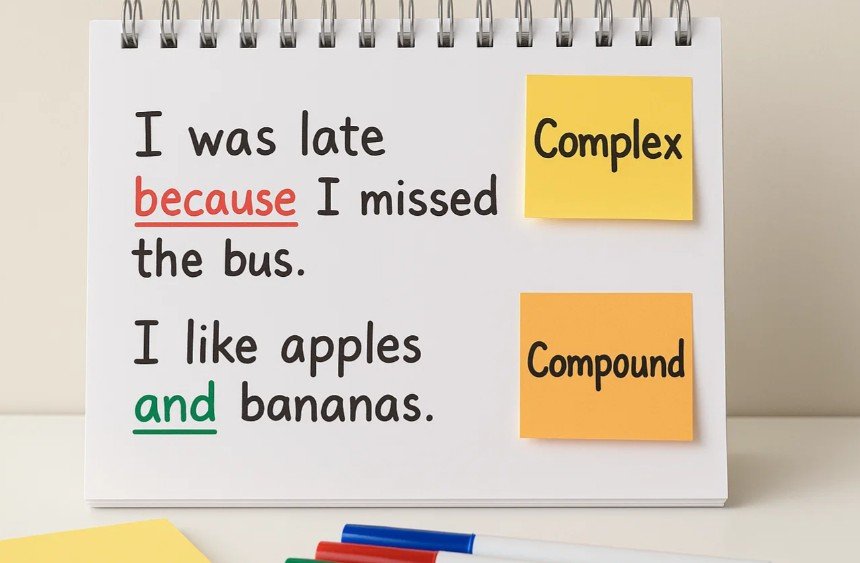 I was late
because I missed
the bus.
Complex
I like apples
and bananas.
Compound